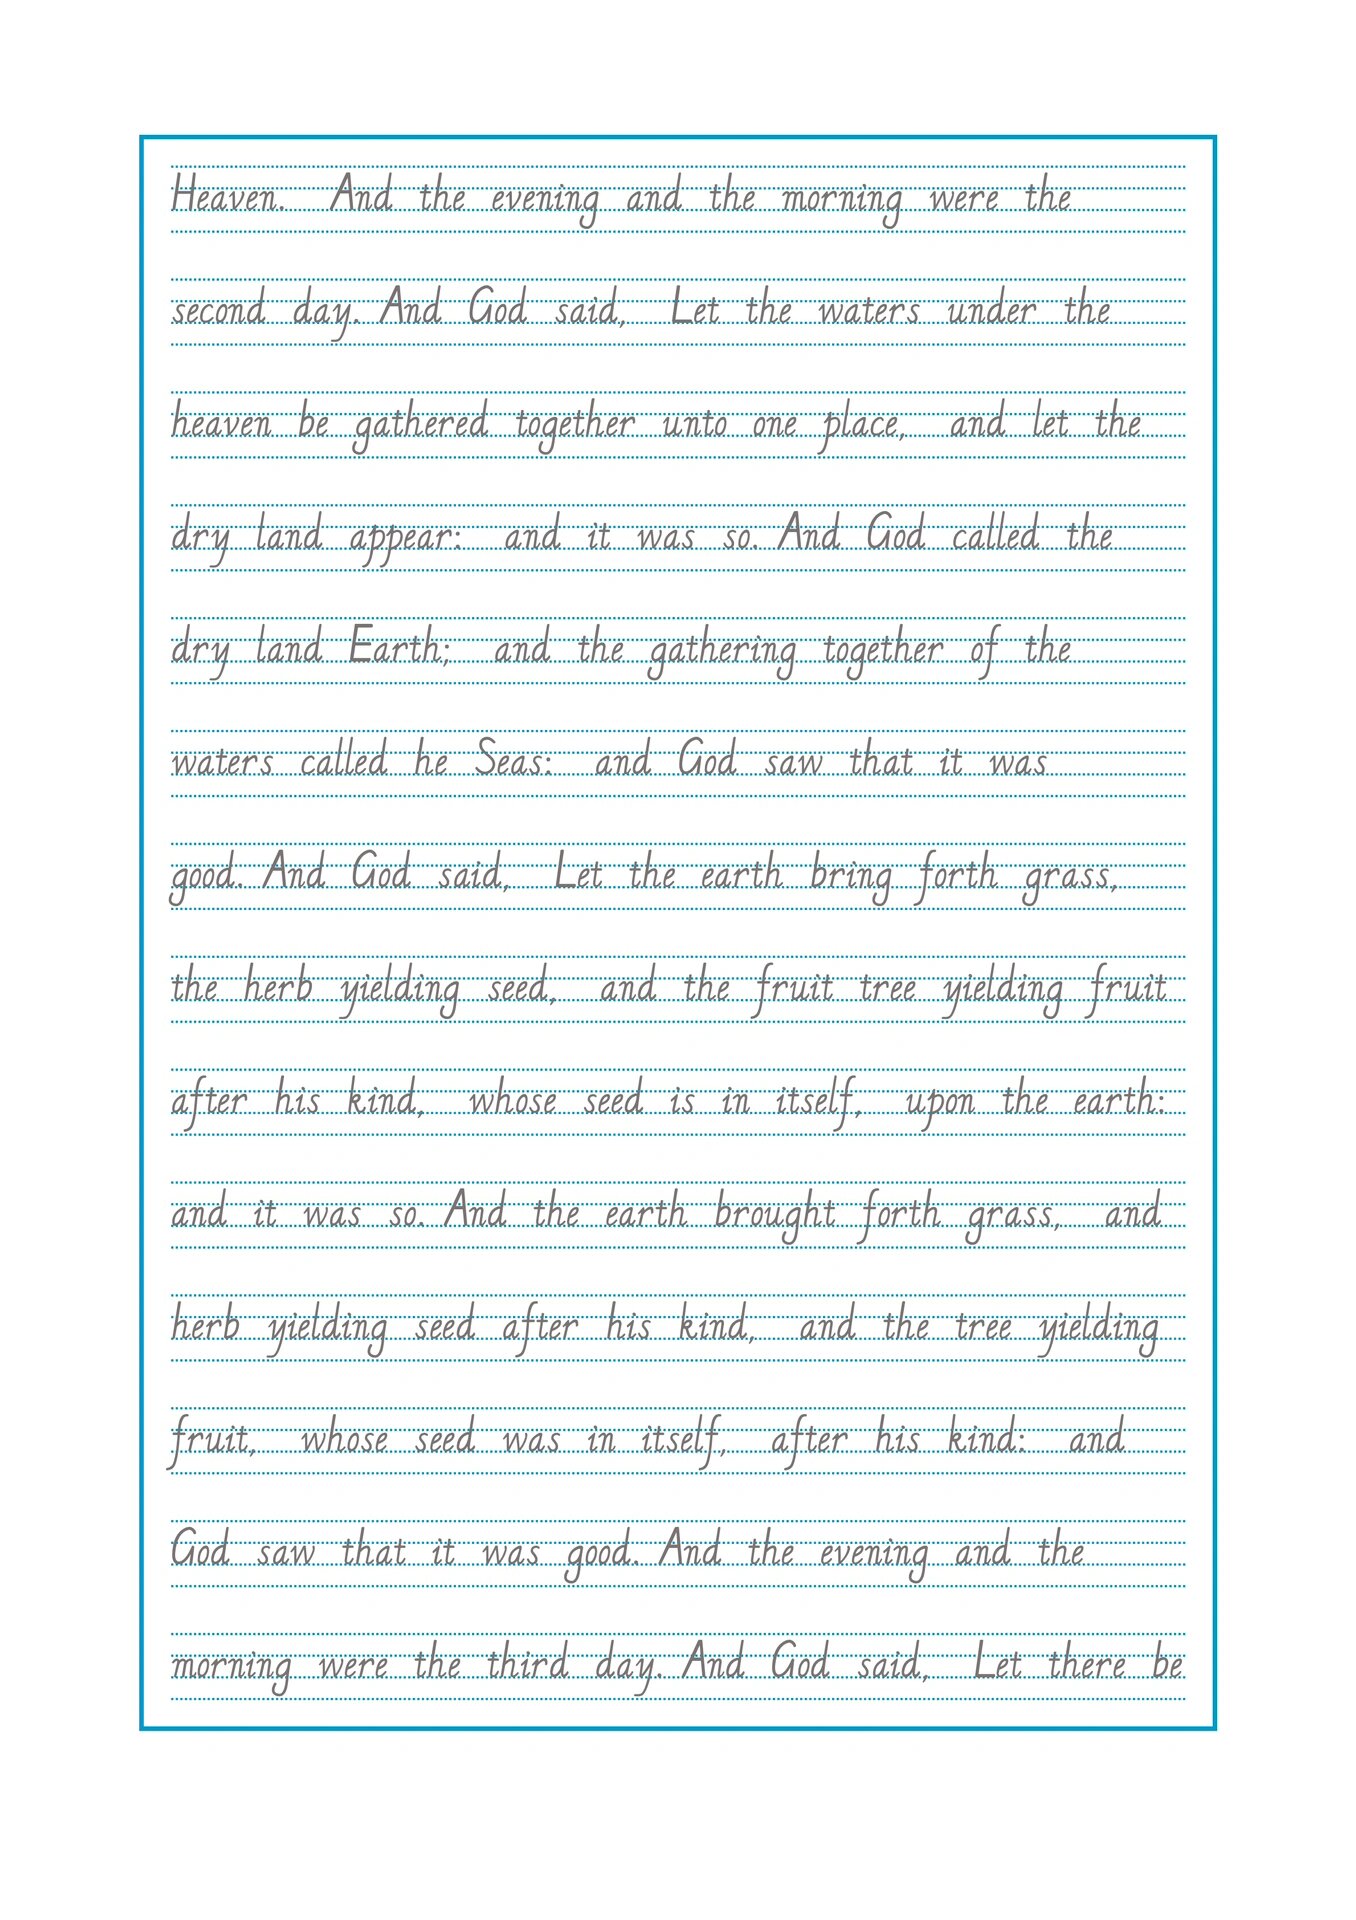 Heaven. And the evening and the morning were the
second day. And God said, Let the waters under the
heaven be gathered together unto one place, and let the
dry land appear: and it was so. And God called the
dry land Earth; and the gathering together of the
waters called he Seas: and God saw that it was
good. And God said, Let the earth bring forth grass,
the herb yielding seed, and the fruit tree yielding fruit
after his kind, whose seed is in itself, upon the earth:
and it was so. And the earth brought forth grass, and
herb yielding seed after his kind, and the tree yielding
fruit, whose seed was in itself, after his kind: and
God saw that it was good. And the evening and the
morning were the third day. And God said, Let there be